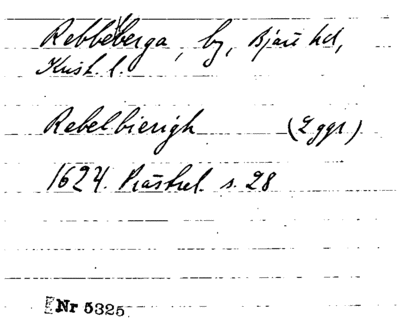 Rebbeberga, by, Bjäre hd,
Krist. l.
Rebelbierigh (2 ggr)
1624. Prästrel. s. 28
Nr 5325